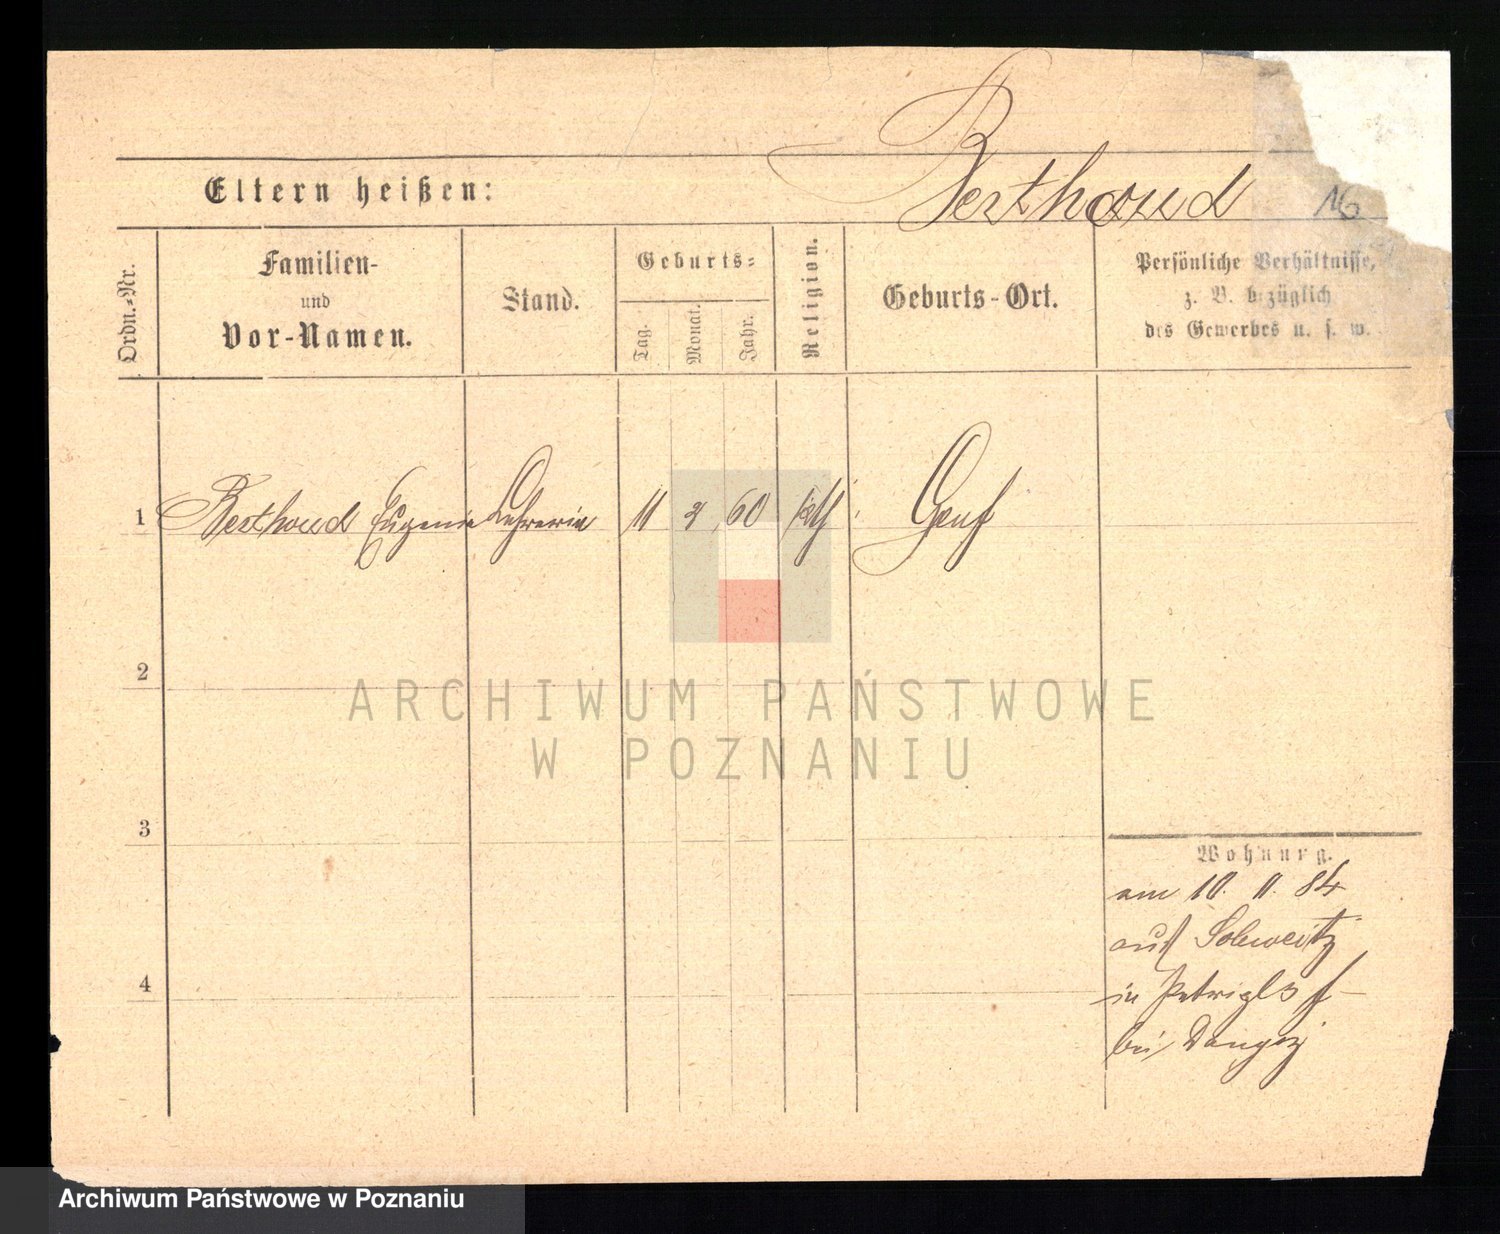 Berthoud 16
Eltern heißen:
Ordn.-Nr.
Familien-
und
Vor-Namen.
Stand.
Geburts-
Tag.
Monat.
Jahr.
Religion.
Geburts-Ort.
Persönliche Verhältnisse,
z. B. bezüglich
des Gewerbes u. s. w.
1 Berthoud Eugenie Lehrerin 11 2 60 kth Genf
2
3
4
Wohnung.
am 10. 11. 84
aus Schweitz
in
bei Danzig
ARCHIWUM PAŃSTWOWE
W POZNANIU
Archiwum Państwowe w Poznaniu